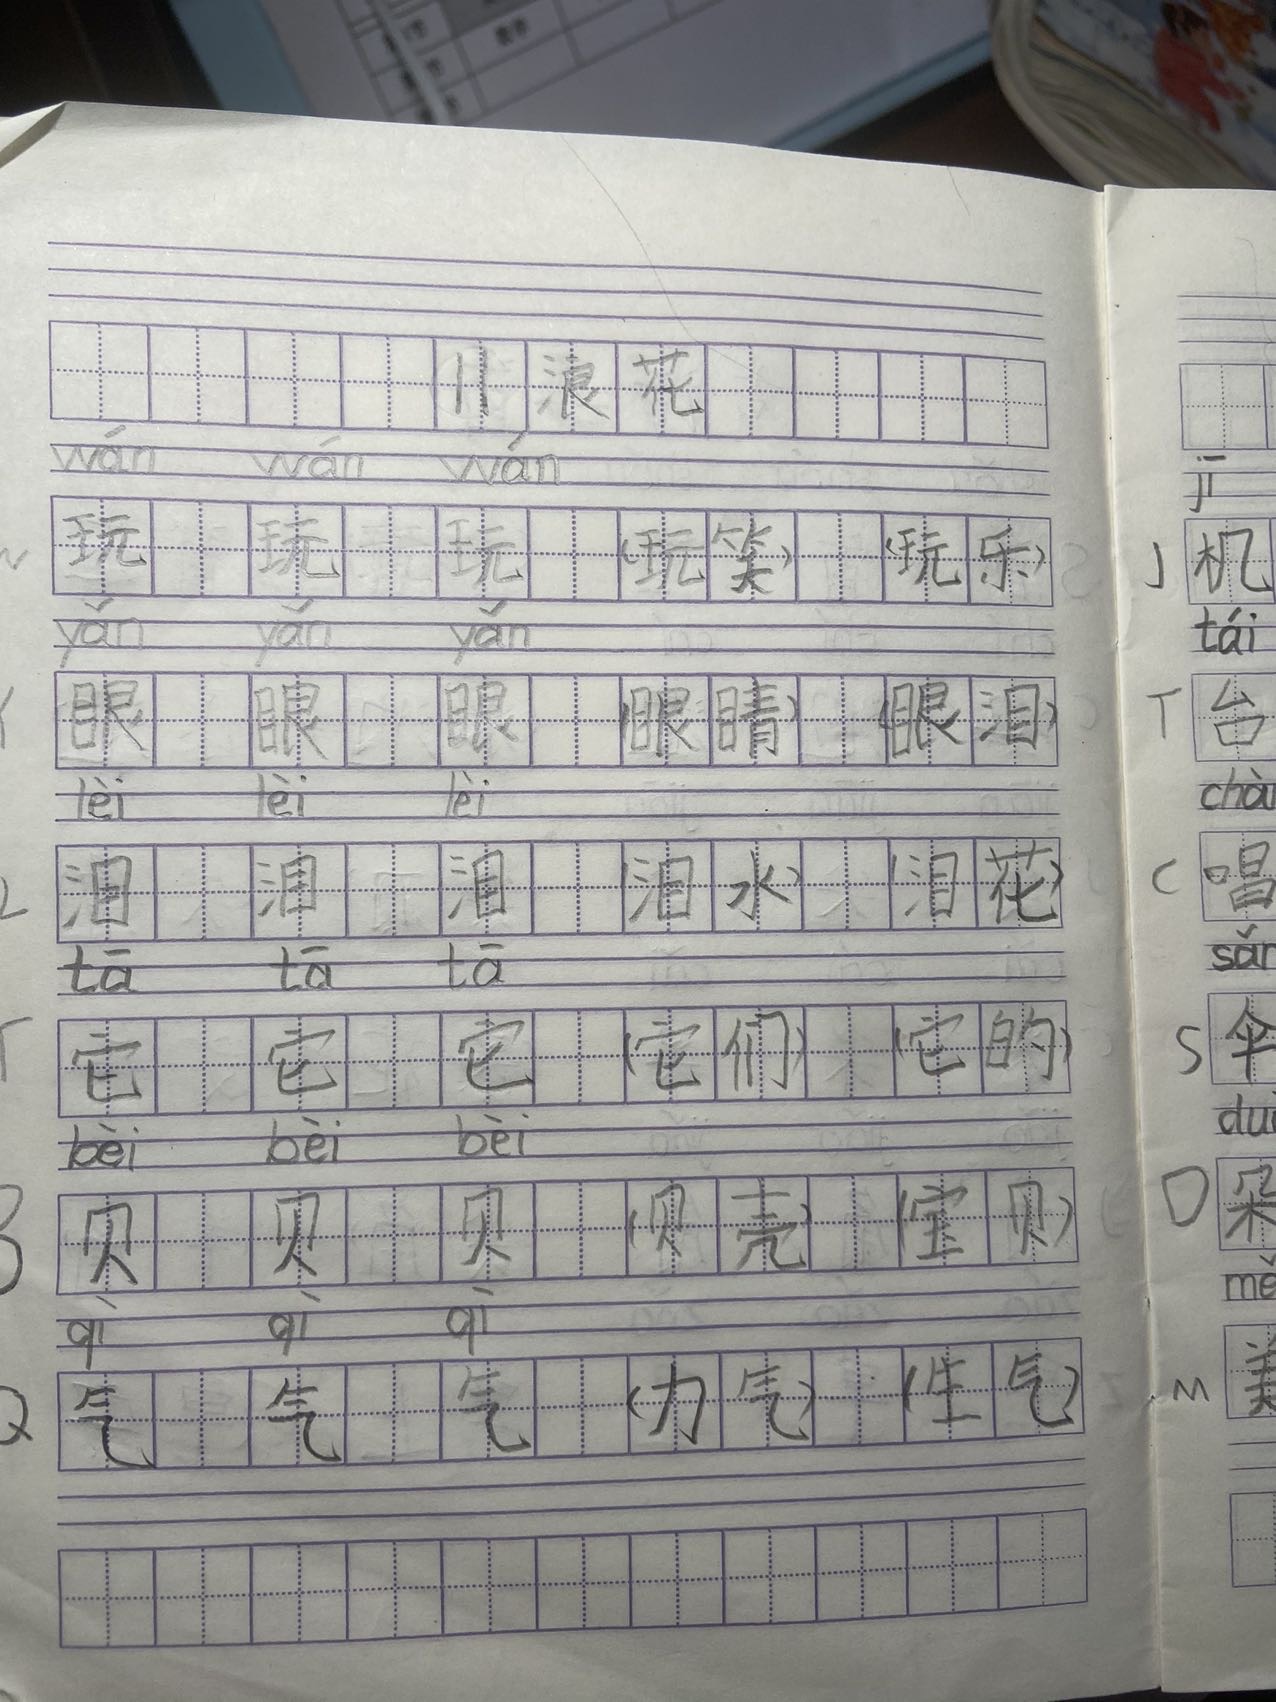 11 浪花
wán wán wán
玩 玩 玩 (玩笑) (玩乐)
yǎn yǎn yǎn
Y 眼 眼 眼 (眼睛) (眼泪)
lèi lèi lèi
L 泪 泪 泪 (泪水) (泪花)
tā tā tā
T 它 它 它 (它们) (它的)
bèi bèi bèi
B 贝 贝 贝 (贝壳) (宝贝)
qì qì qì
Q 气 气 气 (力气) (生气)
jī
J 机
tái
T 台
chàn
C 唱
sǎn
S 伞
duǒ
D 朵
měi
M 美